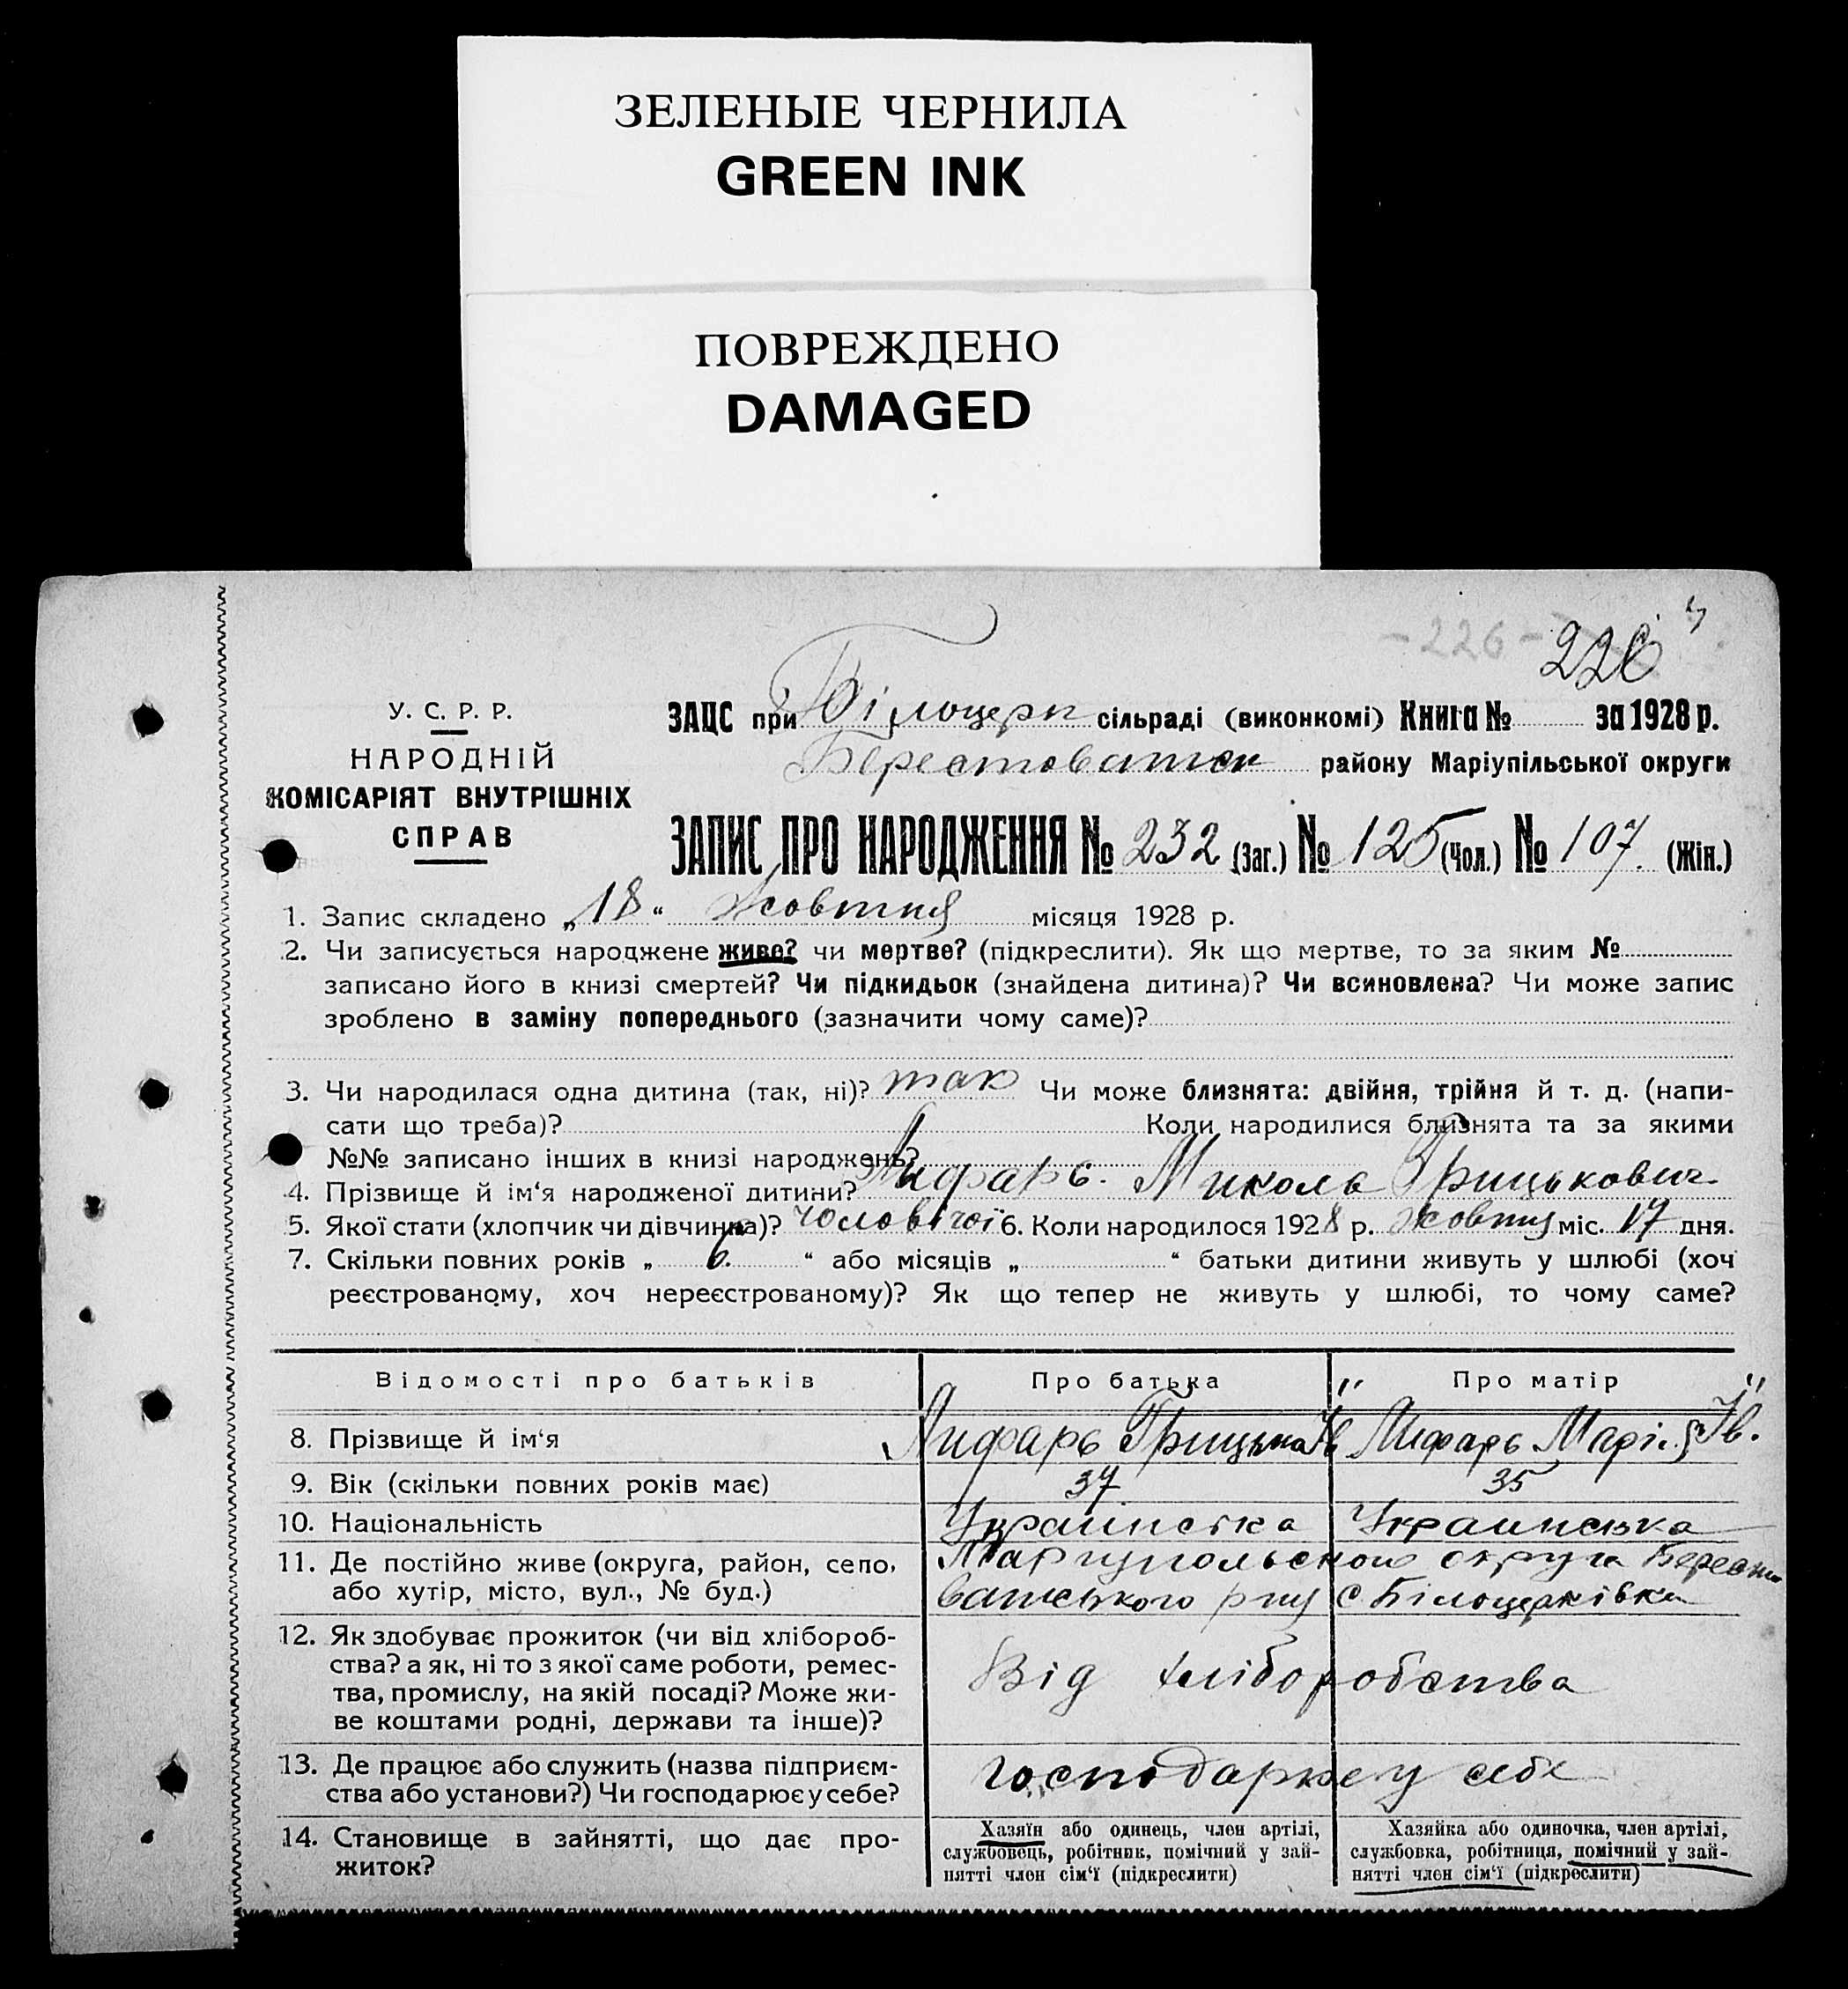 ЗЕЛЕНЫЕ ЧЕРНИЛА
GREEN INK
ПОВРЕЖДЕНО
DAMAGED
-226-
226
У. С. Р. Р.
НАРОДНІЙ
КОМІСАРІЯТ ВНУТРІШНІХ
СПРАВ
ЗАЦС при Білоцерк сільраді (виконкомі) Книга № за 1928 р.
Берестоватск району Маріупільської округи
ЗАПИС ПРО НАРОДЖЕННЯ № 232 (Заг.) № 125 (Чол.) № 107 (Жін.)
1. Запис складено „18“ Жовтня місяця 1928 р.
2. Чи записується народжене живе? чи мертве? (підкреслити). Як що мертве, то за яким №
записано його в книзі смертей? Чи підкидьок (знайдена дитина)? Чи всиновлена? Чи може запис
зроблено в заміну попереднього (зазначити чому саме)?
3. Чи народилася одна дитина (так, ні)? так Чи може близнята: двійня, трійня й т. д. (напи-
сати що треба)? Коли народилися близнята та за якими
№№ записано інших в книзі народжень?
4. Прізвище й ім‘я народженої дитини? Лифарь Микола Грицькович
5. Якої стати (хлопчик чи дівчинка)? чоловічої 6. Коли народилося 1928 р. жовтня міс. 17 дня.
7. Скільки повних років „ 6 “ або місяців „ “ батьки дитини живуть у шлюбі (хоч
реєстрованому, хоч нереєстрованому)? Як що тепер не живуть у шлюбі, то чому саме?
Відомості про батьків Про батька Про матір
8. Прізвище й ім‘я Лифарь Грицько Ів Лифарь Марія Ів.
9. Вік (скільки повних років має) 37 35
10. Національність Украинська Украинська
11. Де постійно живе (округа, район, село, Мариупольскои округи Берести
або хутір, місто, вул., № буд.) ватського р-ну с. Білоцерківка
12. Як здобуває прожиток (чи від хлібороб-
ства? а як, ні то з якої саме роботи, ремес- Від хліборобства
тва, промислу, на якій посаді? Може жи-
ве коштами родні, держави та інше)?
13. Де працює або служить (назва підприєм- господарює у себе
ства або установи?) Чи господарює у себе?
14. Становище в зайнятті, що дає про-
житок?
Хазяїн або одинець, член артілі,
службовець, робітник, помічний у зай-
нятті член сім‘ї (підкреслити)
Хазяйка або одиночка, член артілі,
службовка, робітниця, помічний у зай-
нятті член сім‘ї (підкреслити)